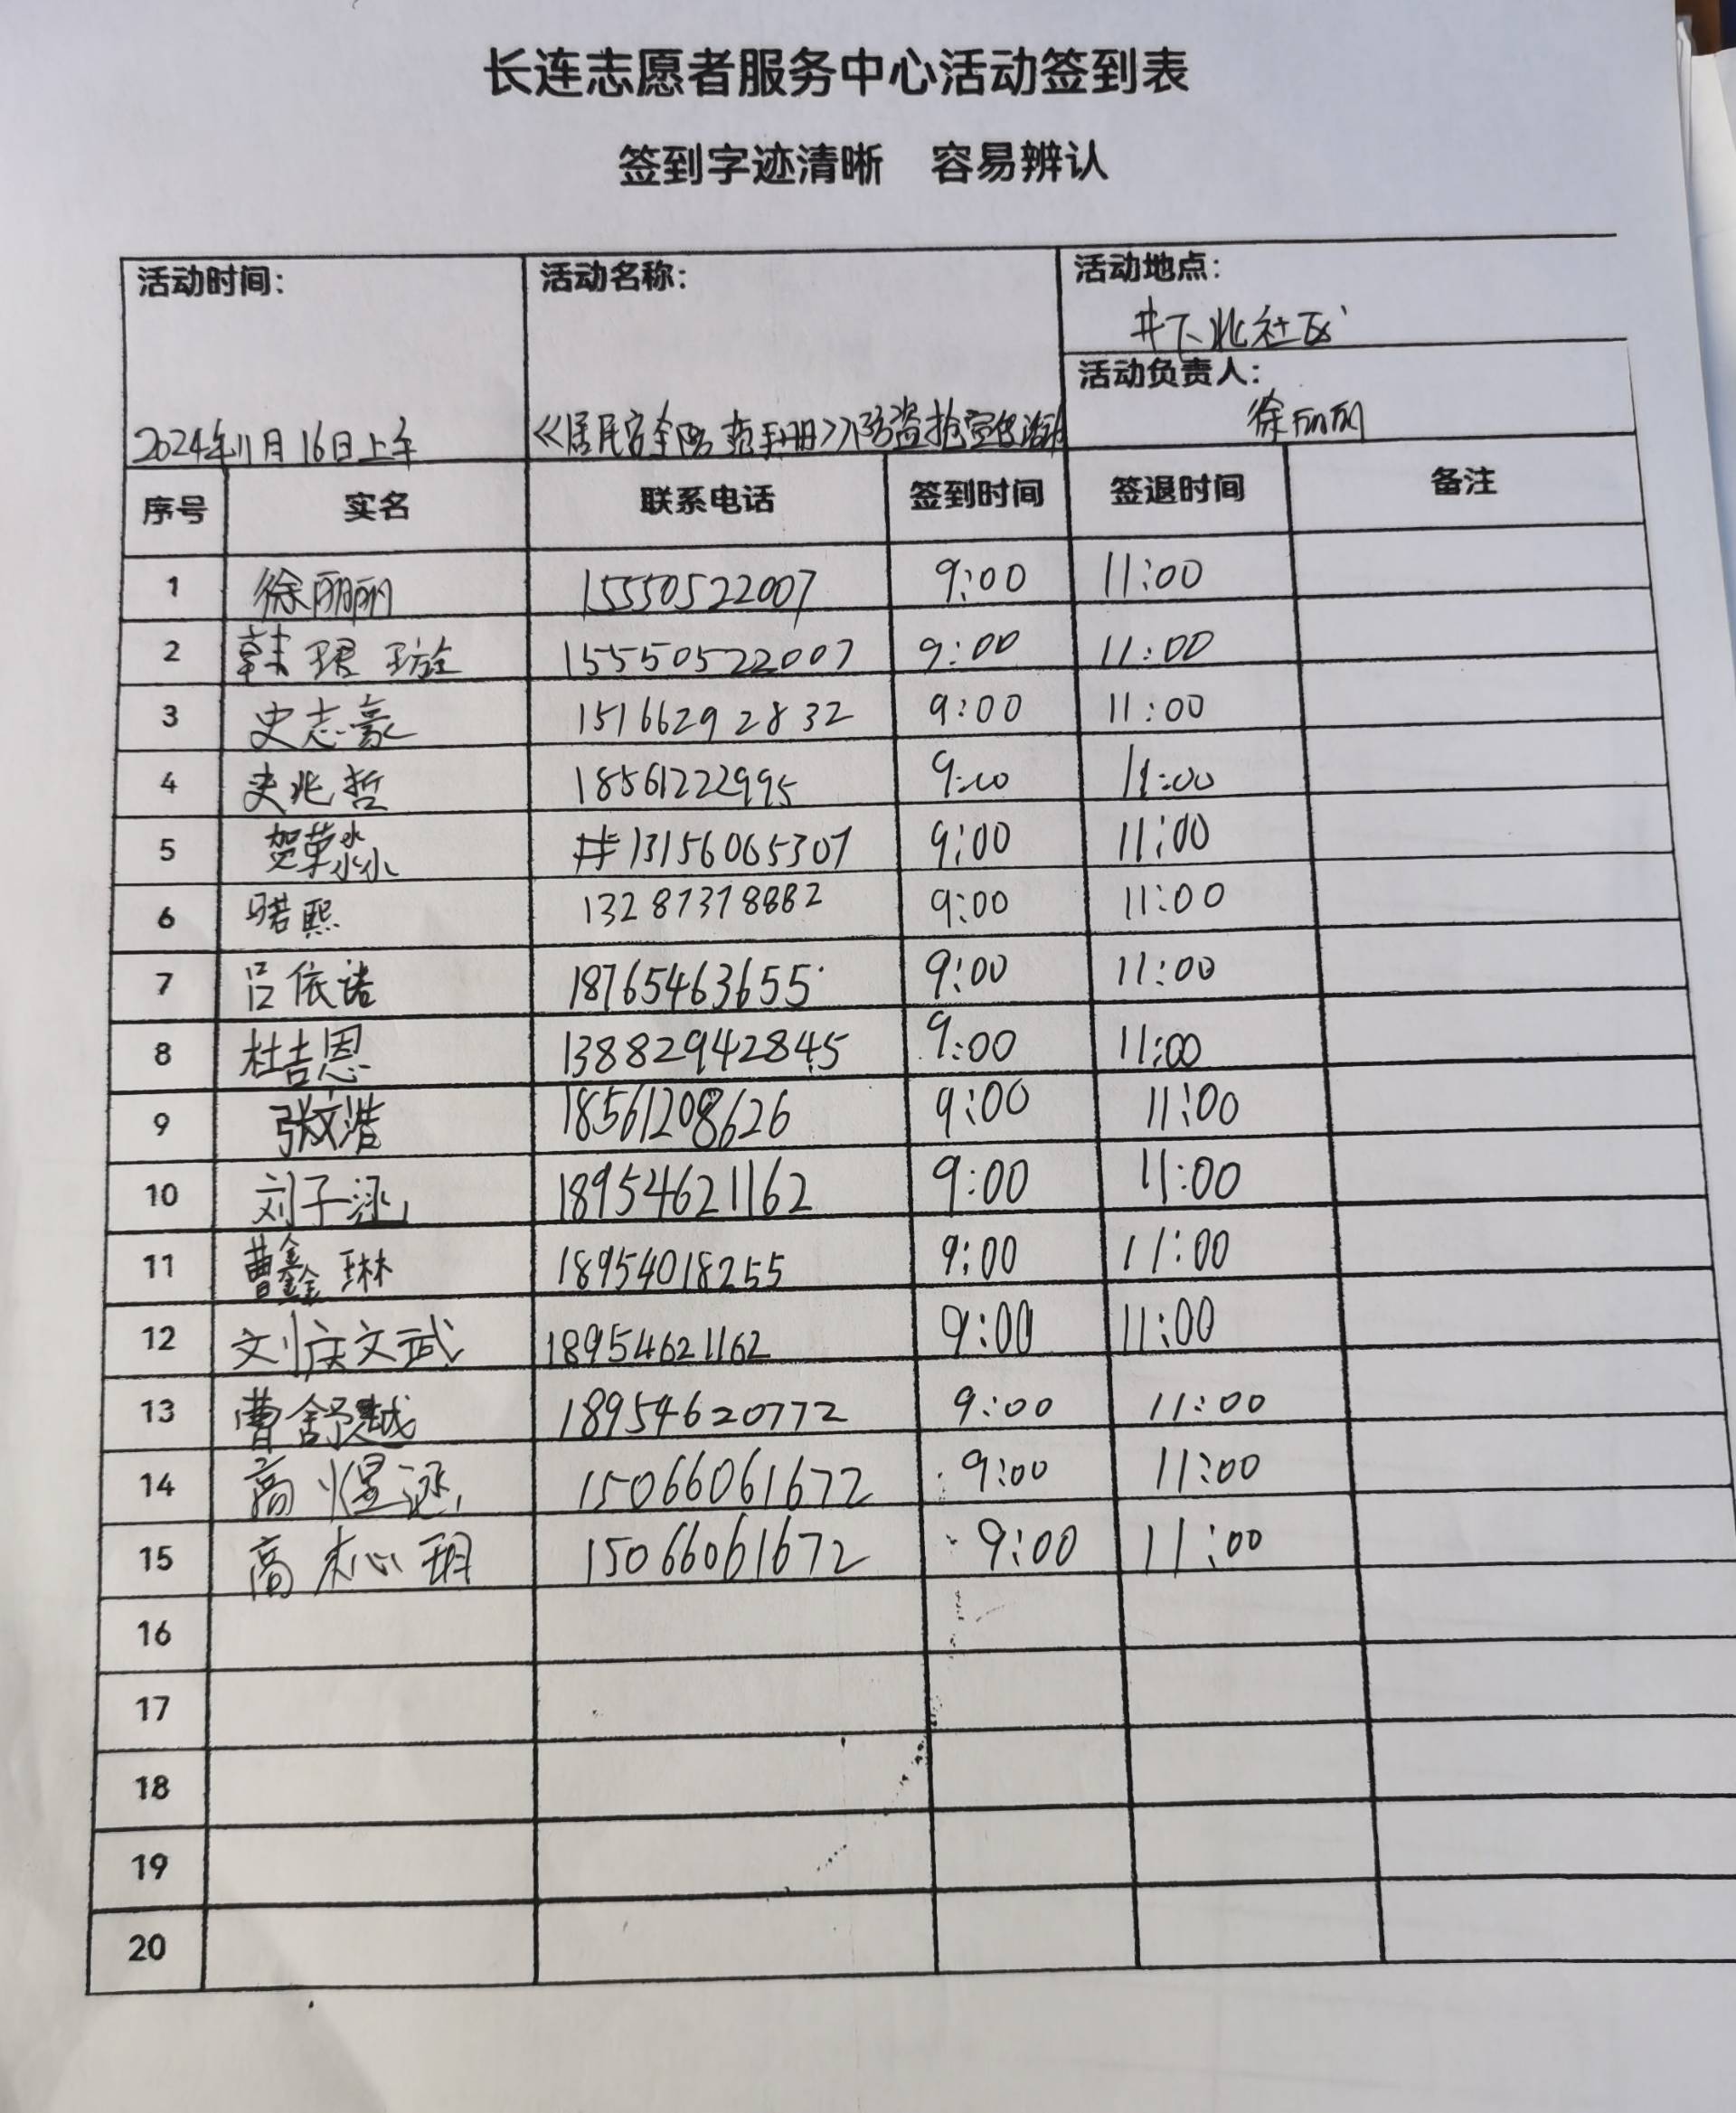 长连志愿者服务中心活动签到表
签到字迹清晰 容易辨认
活动时间： 活动名称： 活动地点：
井下北社区
活动负责人：
2024年11月16日上午 《居民安全防范手册》防盗抢宣传活动 徐丽丽
序号 实名 联系电话 签到时间 签退时间 备注
1 徐丽丽 15550522007 9:00 11:00
2 韩珺璇 15550522007 9:00 11:00
3 史志豪 15166292832 9:00 11:00
4 史兆哲 18561222995 9:00 11:00
5 贺荣淼 13156065307 9:00 11:00
6 熙 13287378882 9:00 11:00
7 吕依诺 18765463655 9:00 11:00
8 杜吉恩 13882942845 9:00 11:00
9 张文浩 18561208626 9:00 11:00
10 刘子涵 18954621162 9:00 11:00
11 曹鑫琳 18954018255 9:00 11:00
12 刘庆文武 18954621162 9:00 11:00
13 曹舒越 18954620772 9:00 11:00
14 高煜涵 15066061672 9:00 11:00
15 高 玥 15066061672 9:00 11:00
16
17
18
19
20